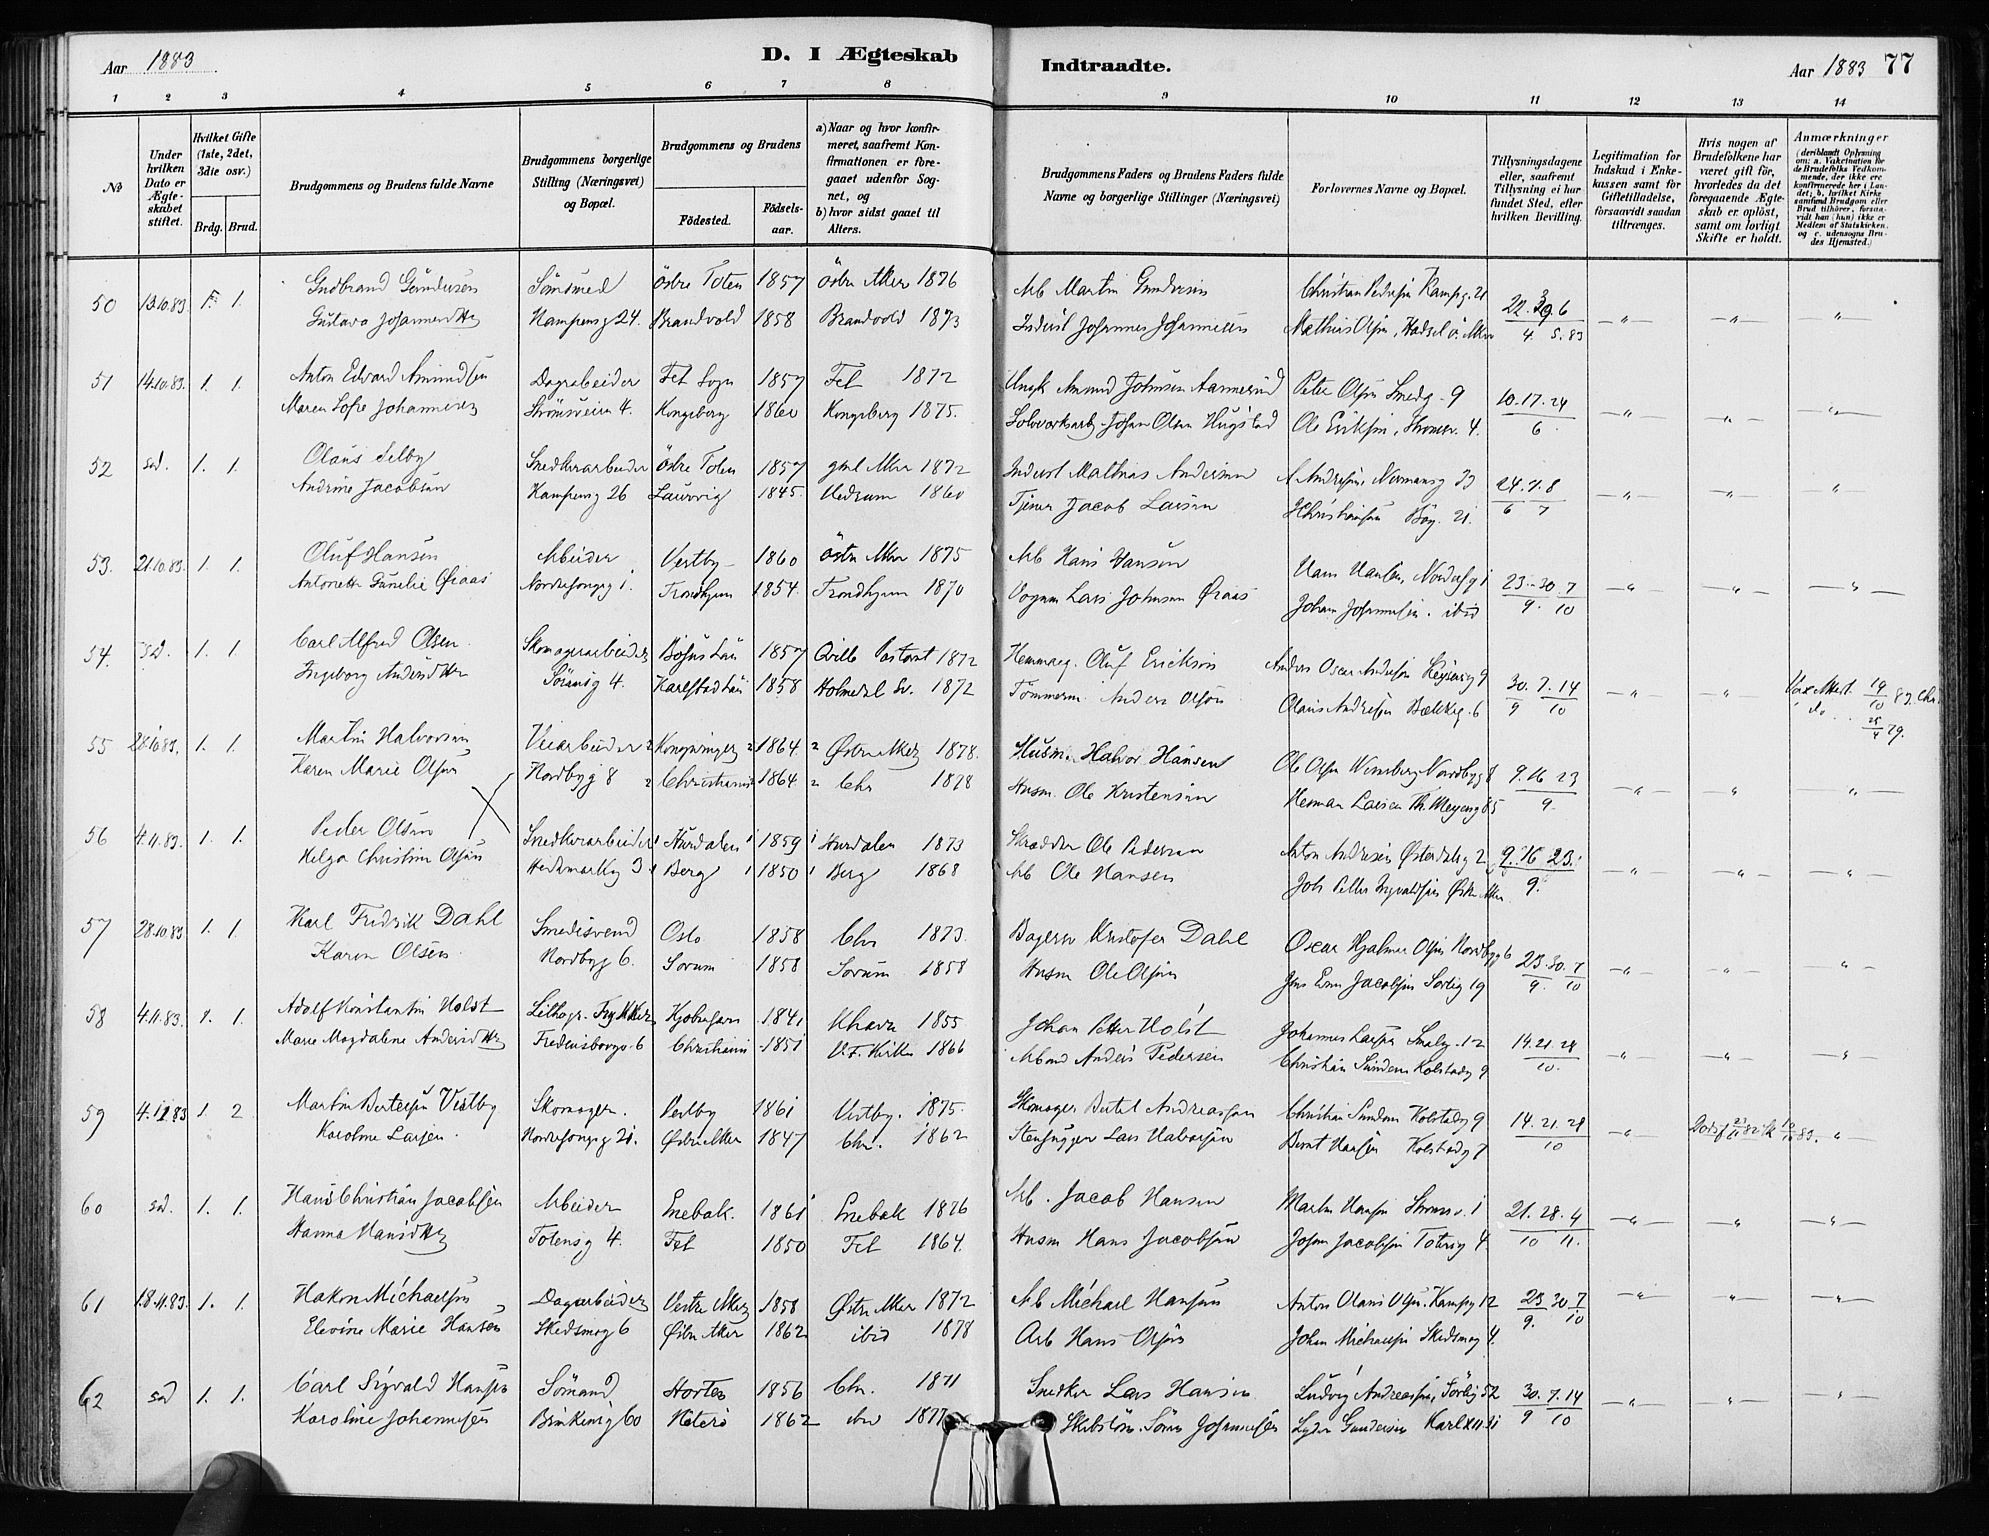 Aar 1883
D. I Ægteskab
Indtraadte.
Aar 1883 77
1 2 3 4 5 6 7 8 9 10 11 12 13 14
No
Under hvilken Dato er Ægteskabet stiftet.
Hvilket Gifte (1ste, 2det, 3die osv.)
Brdg. Brud.
Brudgommens og Brudens fulde Navne
Brudgommens borgerlige Stilling (Næringsvei) og Bopæl.
Brudgommens og Brudens
Födested.
Födsels-aar.
a) Naar og hvor konfirmeret, saafremt Konfirmationen er foregaaet udenfor Sognet, og
b) hvor sidst gaaet til Alters.
Brudgommens Faders og Brudens Faders fulde Navne og borgerlige Stillinger (Næringsvei)
Forlovernes Navne og Bopæl.
Tillysningsdagene eller, saafremt Tillysning ei har fundet Sted, efter hvilken Bevilling.
Legitimation for Indskud i Enkekassen samt for Giftetilladelse, forsaavidt saadan tiltrænges.
Hvis nogen af Brudefolkene har været gift før, hvorledes da det foregaaende Ægteskab er oplöst, samt om lovligt Skifte er holdt.
Anmærkninger
(deriblandt Oplysning om: a. Vakcination for de Brudefolks Vedkommende, der ikke ere konfirmerede her i Landet; b. hvilket Kirkesamfund Brudgom eller Brud tilhörer, forsaavidt han (hun) ikke er Medlem af Statskirken, og c. udensogns Brudes Hjemsted.)
50 13.10.83 1. Gudbrand Gundersen Sömand Östre Toten 1857 Östre Aker 1876 Arb Martin Gundersen Christian Pedersen Kampg. 21
Gustava Johannesdtr Kampensg 24. Brandvold 1858 Brandvold 1873 Inderst Johannes Johannesen Mathias Olsen,
51 14.10.83. 1. 1. Anton Edvard Amundsen Dagarbeider Fet Sogn 1857 Fet 1872 Amund Johnsen Aamerud Peter Olsen Smedg. 9 10.17.24
Maren Sofie Johannesen Strömsveien 4. Kongsberg 1860 Kongsberg 1875. Sölvverksarb Johan Olsen Hugstad Ole Eriksen, Strömsv. 4. 6
52 sad. 1. 1. Olaus Selby Snedkerarbeider Östre Toten 1857 gml Aker 1872 Inderst Mathias Andersen A Andresen, Normansg 23 24.1.8
Andrine Jacobsen Kampensg 26 Laurvig 1845. Hedrum 1860 Tjener Jacob Larsen 6 7
53. 21.10.83. 1. 1. Oluf Hansen Arbeider Vestby 1860 Östre Aker 1875 Arb Hans Hansen Hans Hansen, 23.30.7
Antonette Nordrefongsg 1. Trondhjem 1854. Trondhjem 1870 Lars Johnsen Johan Johannesen. ibid 9. 10
54. sad. 1. 1 Carl Alfred Olsen Skomagerarbeider Bohus Län 1857 Qville Pastorat 1872 Hemmaeg. Oluf Erickson Anders Oscar Andresen 9 30.7.14
Ingeborg Andersdtr Sörumsg 4. Karlstad Län 1858 Holmedal Sv. 1872 Tömmerm Anders Olson Olaus Andresen Bækkeg. 6 9 10
Vax Attest 19/10 83. Chr.
do 79.
55 28.10.83. 1. 1. Martin Halvorsen Veiarbeider Kongsvinger 1864 Østre Aker 1878. Husm. Halvor Hansen Ole Olsen Nordbyg 8 9.16 23
Karen Marie Olsen Nordbyg 8 Christiania 1864 Chr 1878 Husm Ole Kristensen Herman Larsen Th. Meyersg 85 9.
56 4.11.83. 1. 1. Peder Olsen Snedkerarbeider Hurdalen 1859 Hurdalen 1873 Skrædder Ole Pedersen Anton Andresen Østerdalsg 2 9.16 23.
Helga Christine Olsen Hedemarksg 3 Berg 1850 Berg 1868 Arb Ole Hansen Joh Petter Ingvaldsen Østre Aker 9.
57 28.10.83 1. 1. Karl Fredrik Dahl Smedesvend Oslo 1858 Chr 1873. Bagersv Kristofer Dahl Oscar Hjalmar Olsen Nordbyg 6 23.30.7
Karen Olsen Nordbyg 6. Sorum 1858 Sorum 1858 Husm Ole Olsen Jacobsen Sorlig 19 9. 10
58 4.11.83. 1. 1. Adolf Konstantin Holst Lithogr. Trykker Kjobenhavn 1841 Khavn 1855 Johan Petter Holst Johannes Larsen Smalg. 12 14.21.28
Marie Magdalene Andersdtr Fredensborgv. 6 Christiania 1851 V.F. Kirke 1866 Arbmd Anders Pedersen Christian Sunden Kolstadg 9 10.
59 4.11.83 1. 2. Martin Bertelsen Vestby Skomager. Vestby 1861 Vestby. 1875. Skomager Bertel Andreassen Christian Sunden Kolstadg 9 14.21.28
Karoline Larsen. Nordrefongsg 21. Østre Aker 1847 Chr. 1862 Stenhugger Lars Halvorsen Bernt Hansen Kolstadg 7 10
60 sad. 1. 1. Hans Christian Jacobsen Arbeider Enebak. 1861 Enebak 1876 Arb. Jacob Hansen Martin Hansen Strömsv. 1 21.28.4
Hanna Hansdtr Totensg 4. Fet 1850 Fet 1864. Husm Hans Jacobsen Johan Jacobsen Totensg 4. 10 11.
61 18.11.83. 1. 1. Hakon Michaelsen Dagarbeider Vestre Aker 1858 Østre Aker 1872 Arb Michael Hansen Anton Olaus Olsen. Kampg 12 23 30.7
Elevine Marie Hansen Skedsmog 6 Østre Aker 1862 ibid 1878 Arb Hans Olsen Johan Michaelsen Skedsmog 4. 9. 10
62 sad 1. 1. Carl Sigvald Hansen Sömand Horten 1856 Chr. 1871 Snedker Lars Hansen Ludvig Andreassen, Sörlig 52 30.7.14
Karoline Johannesen Brinkenig 60 Nöterö 1862 1877 Sören Johannesen Gundersen Karl XII 9 10